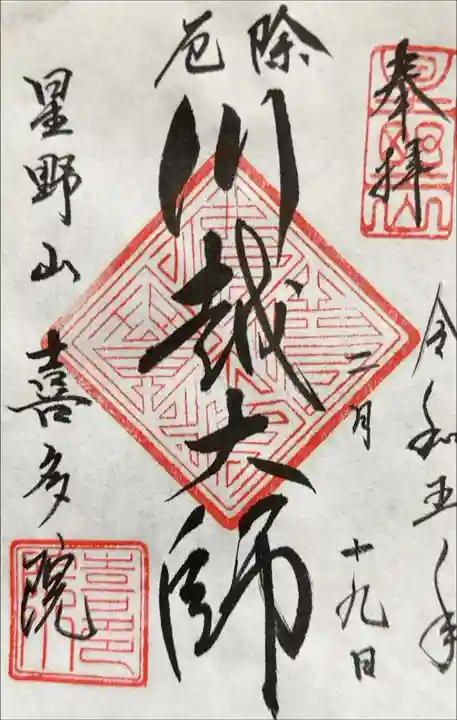 奉拝
令和五年
二月十九日
厄除
川越大師
星野山 喜多院